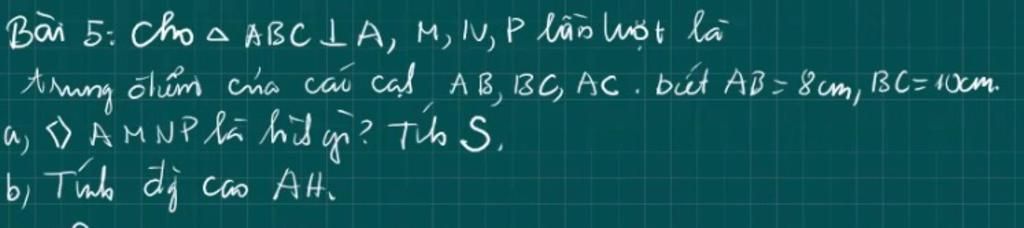 Bài 5: Cho △ ABC ⊥ A, M, N, P lần lượt là
trung điểm của các cạh AB, BC, AC. biết AB = 8cm, BC = 10cm.
a, ◇ AMNP là hìh gì? Tíh S.
b, Tính độ cao AH.